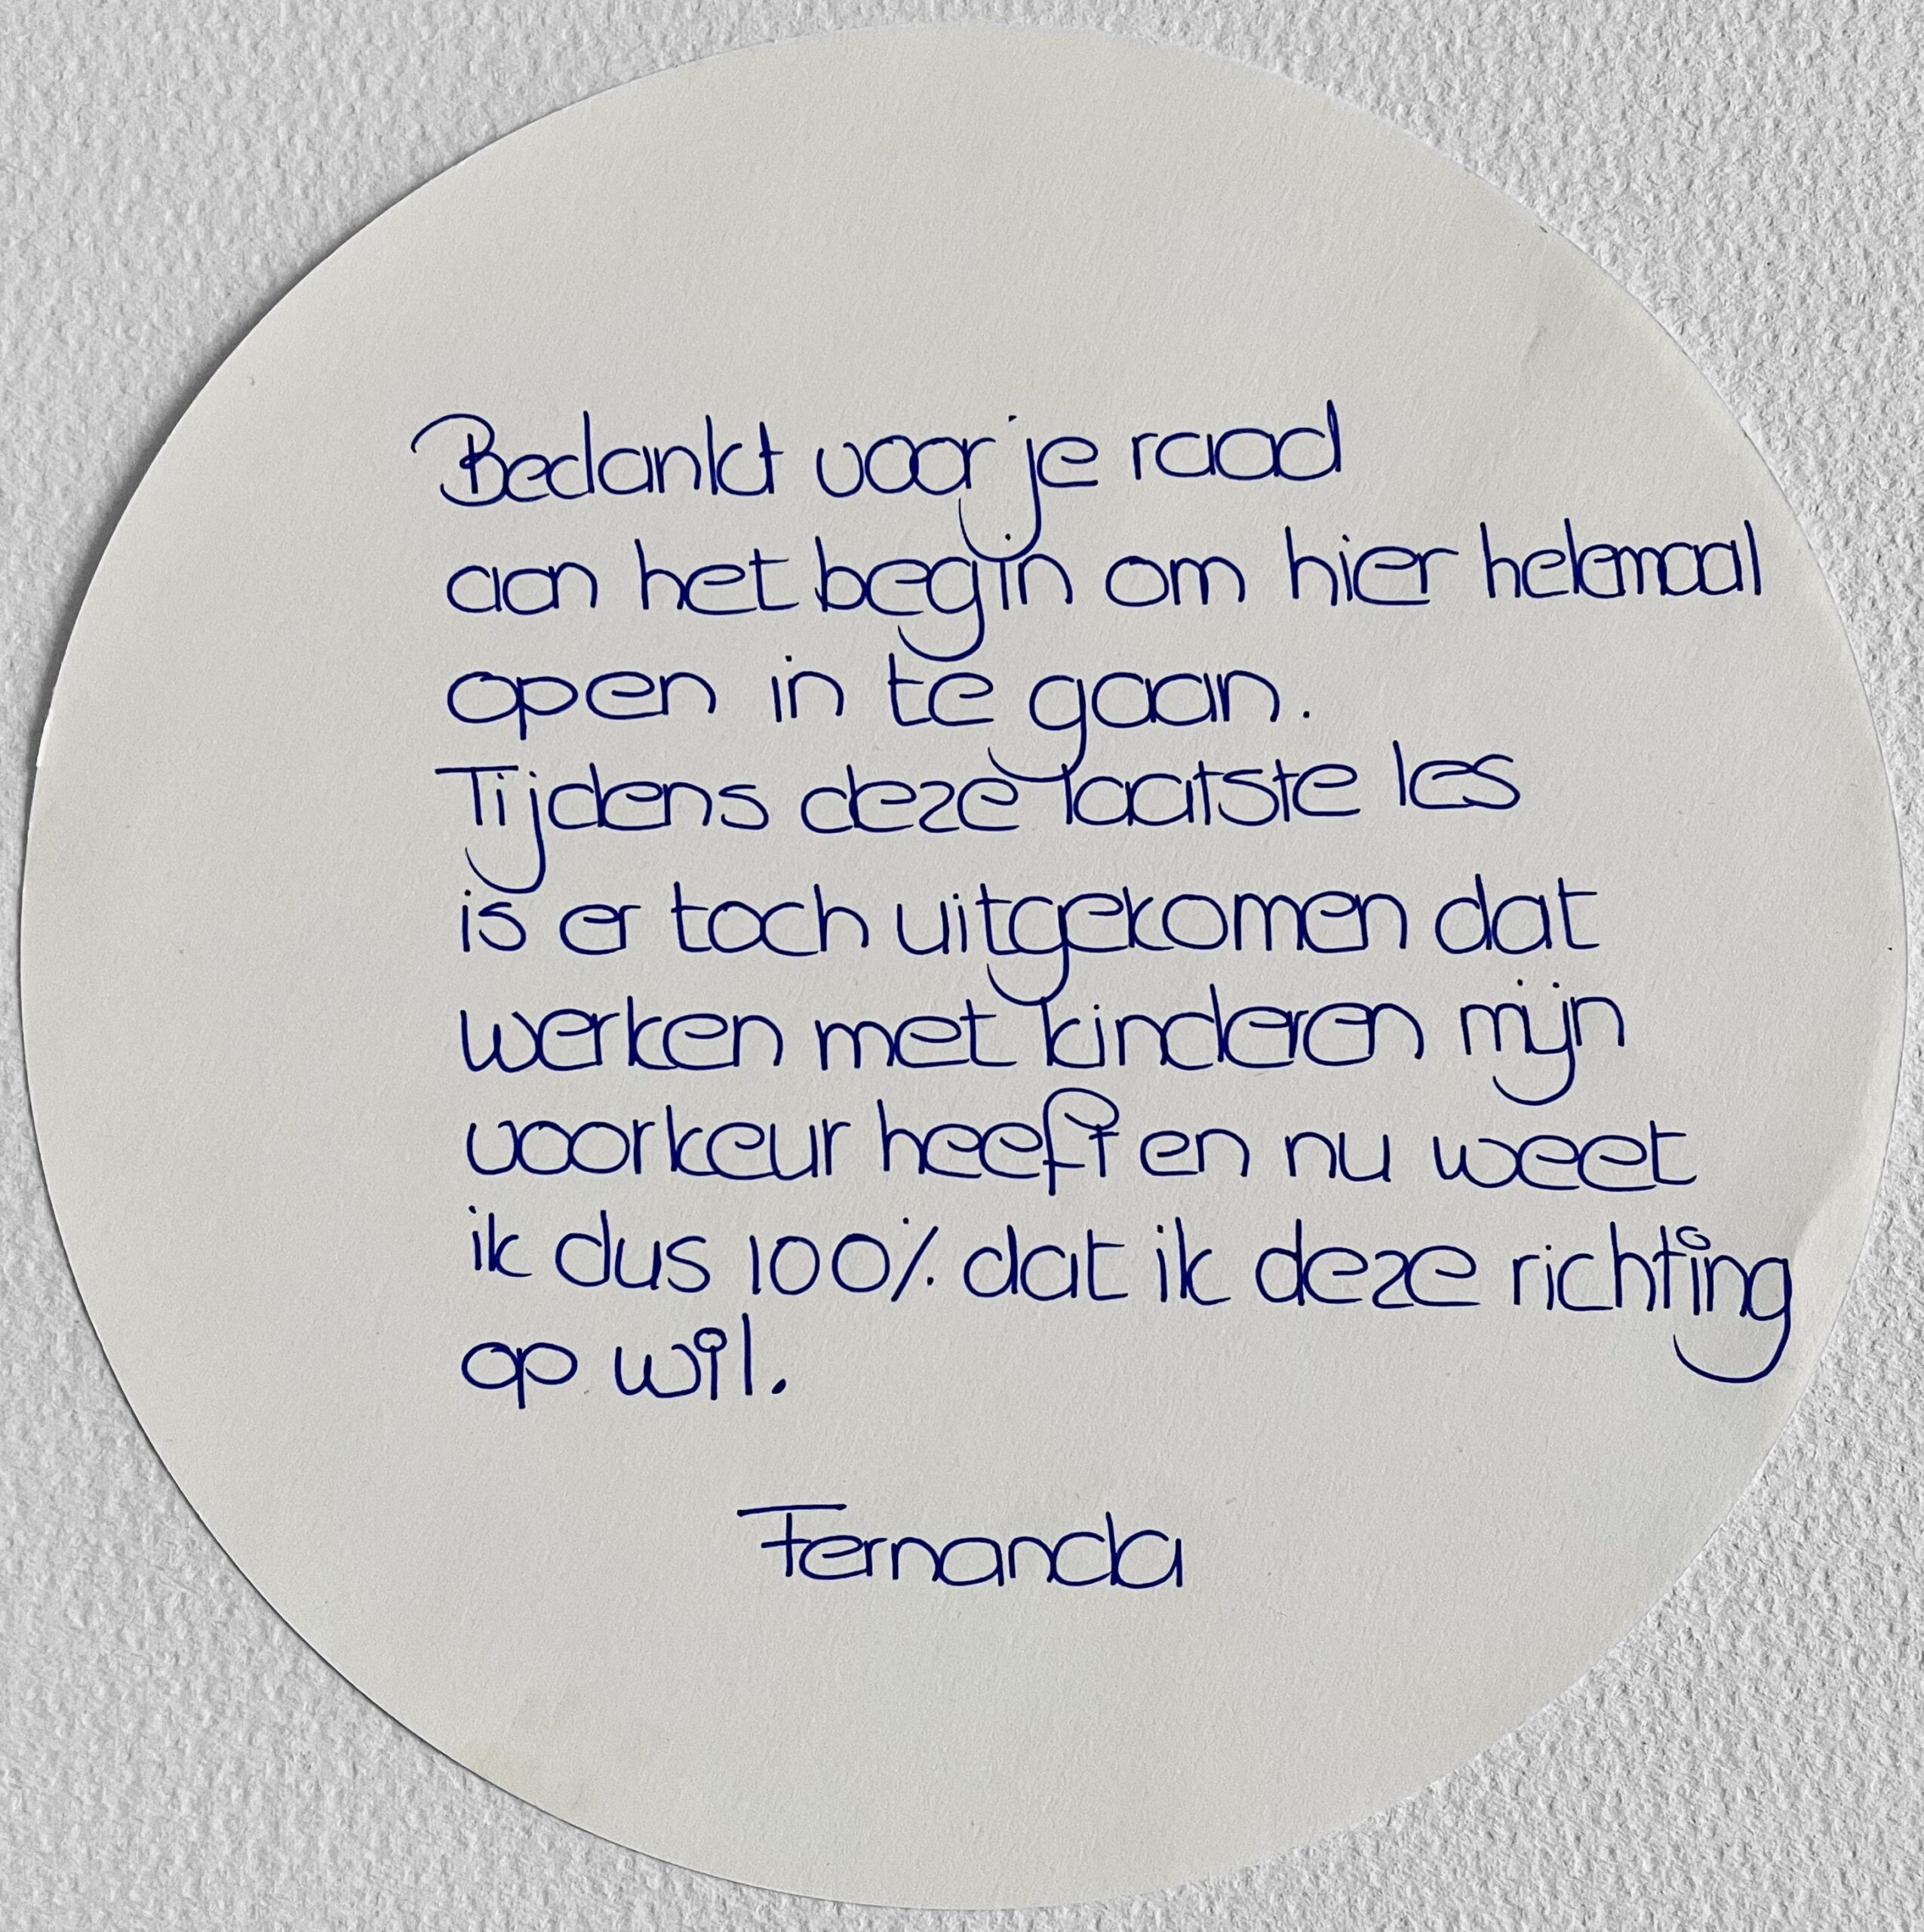 Bedankt voor je raad
aan het begin om hier helemaal
open in te gaan.
Tijdens deze laatste les
is er toch uitgekomen dat
werken met kinderen mijn
voorkeur heeft en nu weet
ik dus 100% dat ik deze richting
op wil.
Fernanda